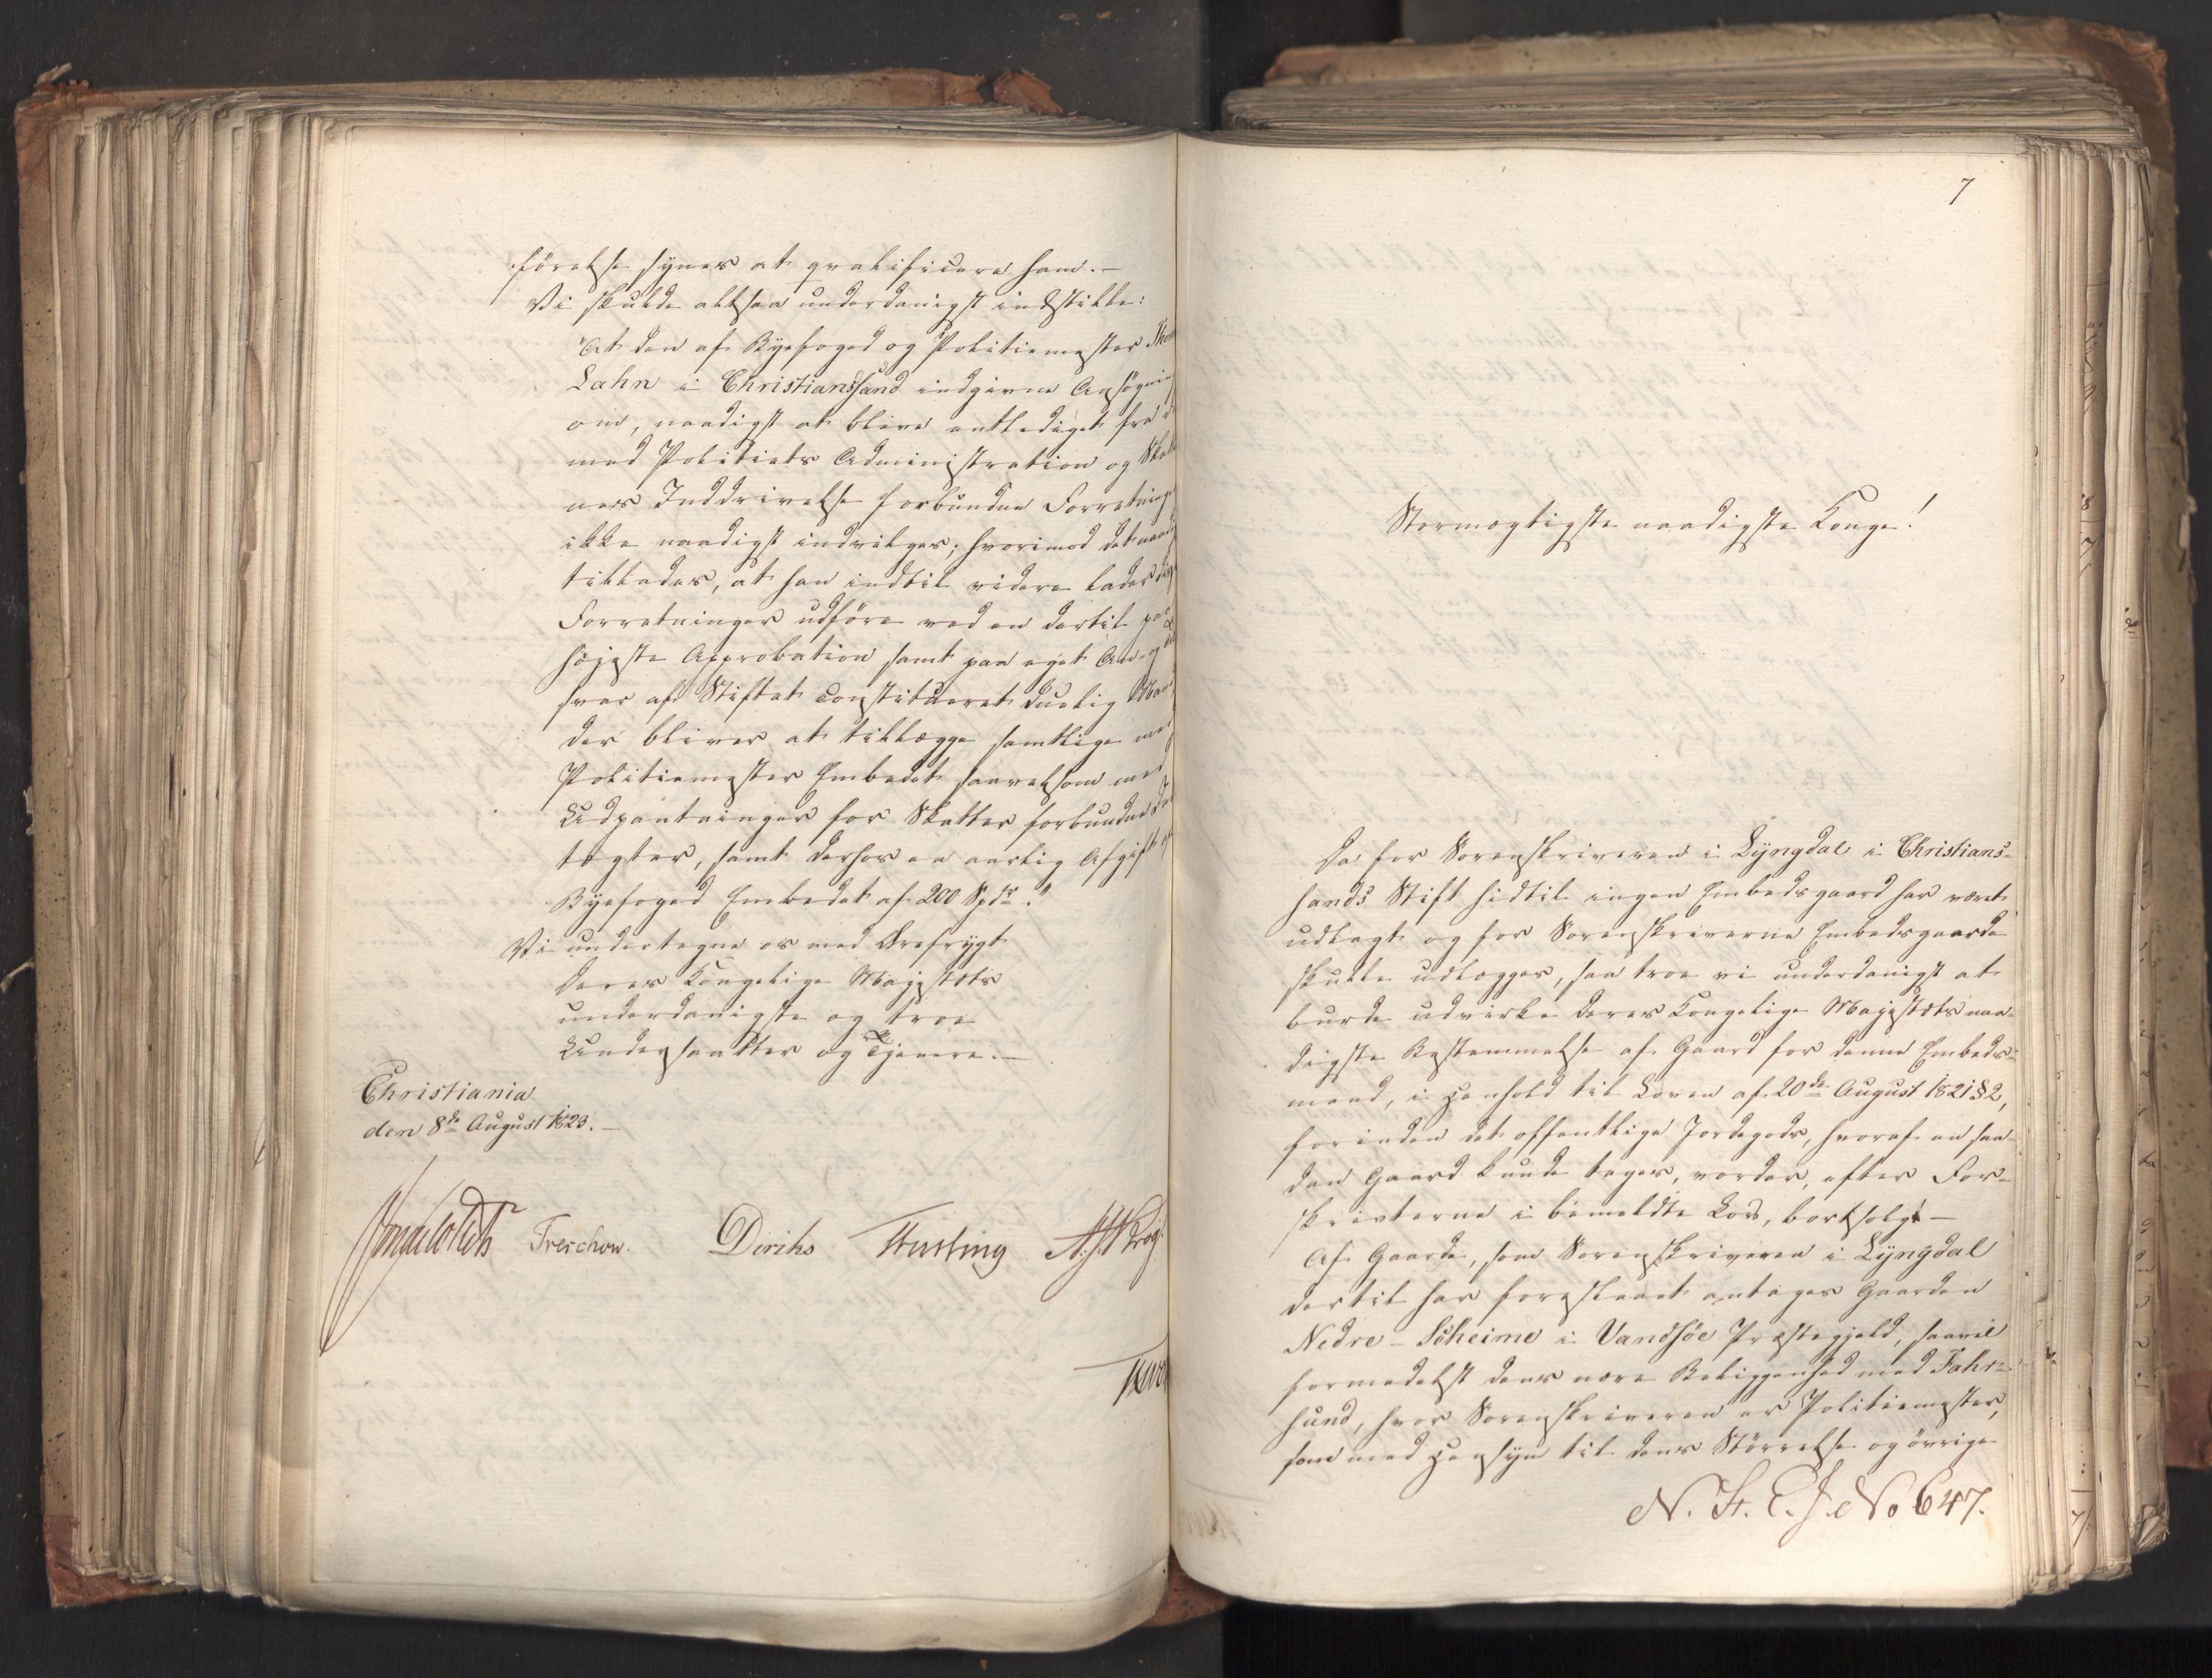 förelse synes at qvalificere ham.-
Vi skulde altsaa underdanigst indstille:
"At den af Byefoged og Politiemester
Lahn i Christianssand indgivne Ansögning
om, naadigst at blive entlediget fra de
med Politiets Administration og Skatter
nes Inddrivelse forbundne Forretninger
ikke naadigst indvilges; hvorimod det naad
tillades, at han indtil videre lader disse
Forretninger udföre ved en dertil paa
höjeste Approbation samt paa eget An- og
svar af Stiftet constitueret duelig Mand
der bliver at tillægge samtlige med
Politiemester Embedet saavelsom med
Udpantninger for Skatter forbundne Ind
tægter, samt derhos en aarlig Afgift af
Byefoged Embedet af 200 Spdr."
Vi undertegne os med Ærefrygt
Deres Kongelige Majestæts
underdanigste og troe
Undersaatter og Tjenere.-
Christiania
den 8de August 1823.-
Treschow. Diriks A. J. Krog
7
Stormægtigste naadigste Konge!
Da for Sorenskriveren i Lyngdal i Christians-
sands Stift hidtil ingen Embedsgaard har været
udlagt og for Sorenskriverne Embedsgaarde
skulle udlægges, saa troe vi underdanigst at
burde udvirke Deres Kongelige Majestæts naa-
digste Bestemmelse af Gaard for denne Embeds-
mand, i Henhold til Loven af 20de August 1821 § 2,
forinden det offentlige Jordegods, hvoraf en saa-
dan Gaard kunde tages, vorder, efter For-
skrivterne i bemeldte Lov, bortsolgt -
Af Gaarde, som Sorenskriveren i Lyngdal
dertil har foreslaaet antages Gaarden
Nedre-Scheime i Vandsöe Præstegjeld, saavel
formedelst dens nære Beliggenhed med Fahr-
sund, hvor Sorenskriveren er Politiemester,
som med Hensyn til dens Störrelse og övrige
N. St. E. J. No 647.